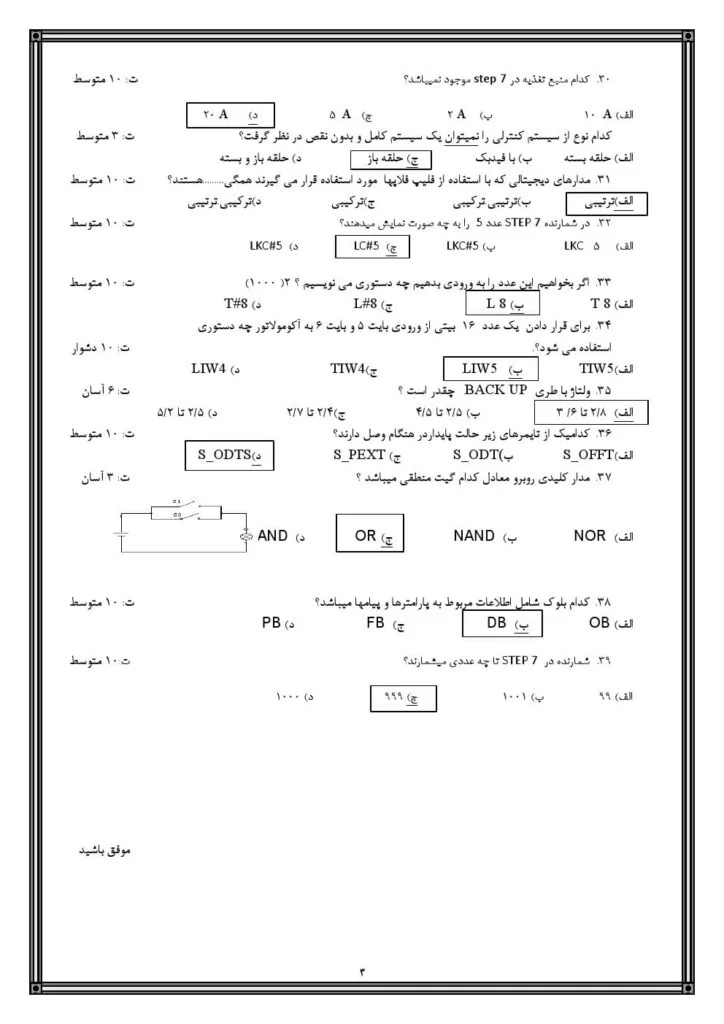 ۳۰. کدام منبع تغذیه در step 7 موجود نمیباشد؟ ت: ۱۰ متوسط
الف) ۱۰ A ب) ۲ A ج) ۵ A د) ۲۰ A
کدام نوع از سیستم کنترلی را نمیتوان یک سیستم کامل و بدون نقص در نظر گرفت؟ ت: ۳ متوسط
الف) حلقه بسته ب) با فیدبک ج) حلقه باز د) حلقه باز و بسته
۳۱. مدارهای دیجیتالی که با استفاده از فلیپ فلاپها مورد استفاده قرار می گیرند همگی........هستند؟ ت: ۱۰ متوسط
الف)ترتیبی ب)ترتیبی ترکیبی ج)ترکیبی د)ترکیبی ترتیبی
۳۲. در شمارنده STEP 7 عدد 5 را به چه صورت نمایش میدهند؟ ت: ۱۰ متوسط
الف) LKC ۵ ب) LKC#5 ج) LC#5 د) LKC#5
۳۳. اگر بخواهیم این عدد را به ورودی بدهیم چه دستوری می نویسیم ؟ ۲( ۱۰۰۰) ت: ۱۰ متوسط
الف) T 8 ب) L 8 ج) L#8 د) T#8
۳۴. برای قرار دادن یک عدد ۱۶ بیتی از ورودی بایت ۵ و بایت ۶ به آکومولاتور چه دستوری
استفاده می شود؟. ت: ۱۰ دشوار
الف)TIW5 ب) LIW5 ج)TIW4 د) LIW4
۳۵. ولتاژ با طری BACK UP چقدر است ؟ ت: ۶ آسان
الف) ۲/۸ تا ۳/۶ ب) ۲/۵ تا ۴/۵ ج)۲/۴ تا ۲/۷ د) ۲/۵ تا ۵/۲
۳۶. کدامیک از تایمرهای زیر حالت پایداردر هنگام وصل دارند؟ ت: ۱۰ متوسط
الف)S_OFFT ب)S_ODT ج) S_PEXT د)S_ODTS
۳۷. مدار کلیدی روبرو معادل کدام گیت منطقی میباشد ؟ ت: ۳ آسان
الف) NOR ب) NAND ج) OR د) AND
S1
S2
۳۸. کدام بلوک شامل اطلاعات مربوط به پارامترها و پیامها میباشد؟ ت: ۱۰ متوسط
الف) OB ب) DB ج) FB د) PB
۳۹. شمارنده در STEP 7 تا چه عددی میشمارند؟ ت:۱۰ متوسط
الف) ۹۹ ب) ۱۰۰۱ ج) ۹۹۹ د) ۱۰۰۰
موفق باشید
۳